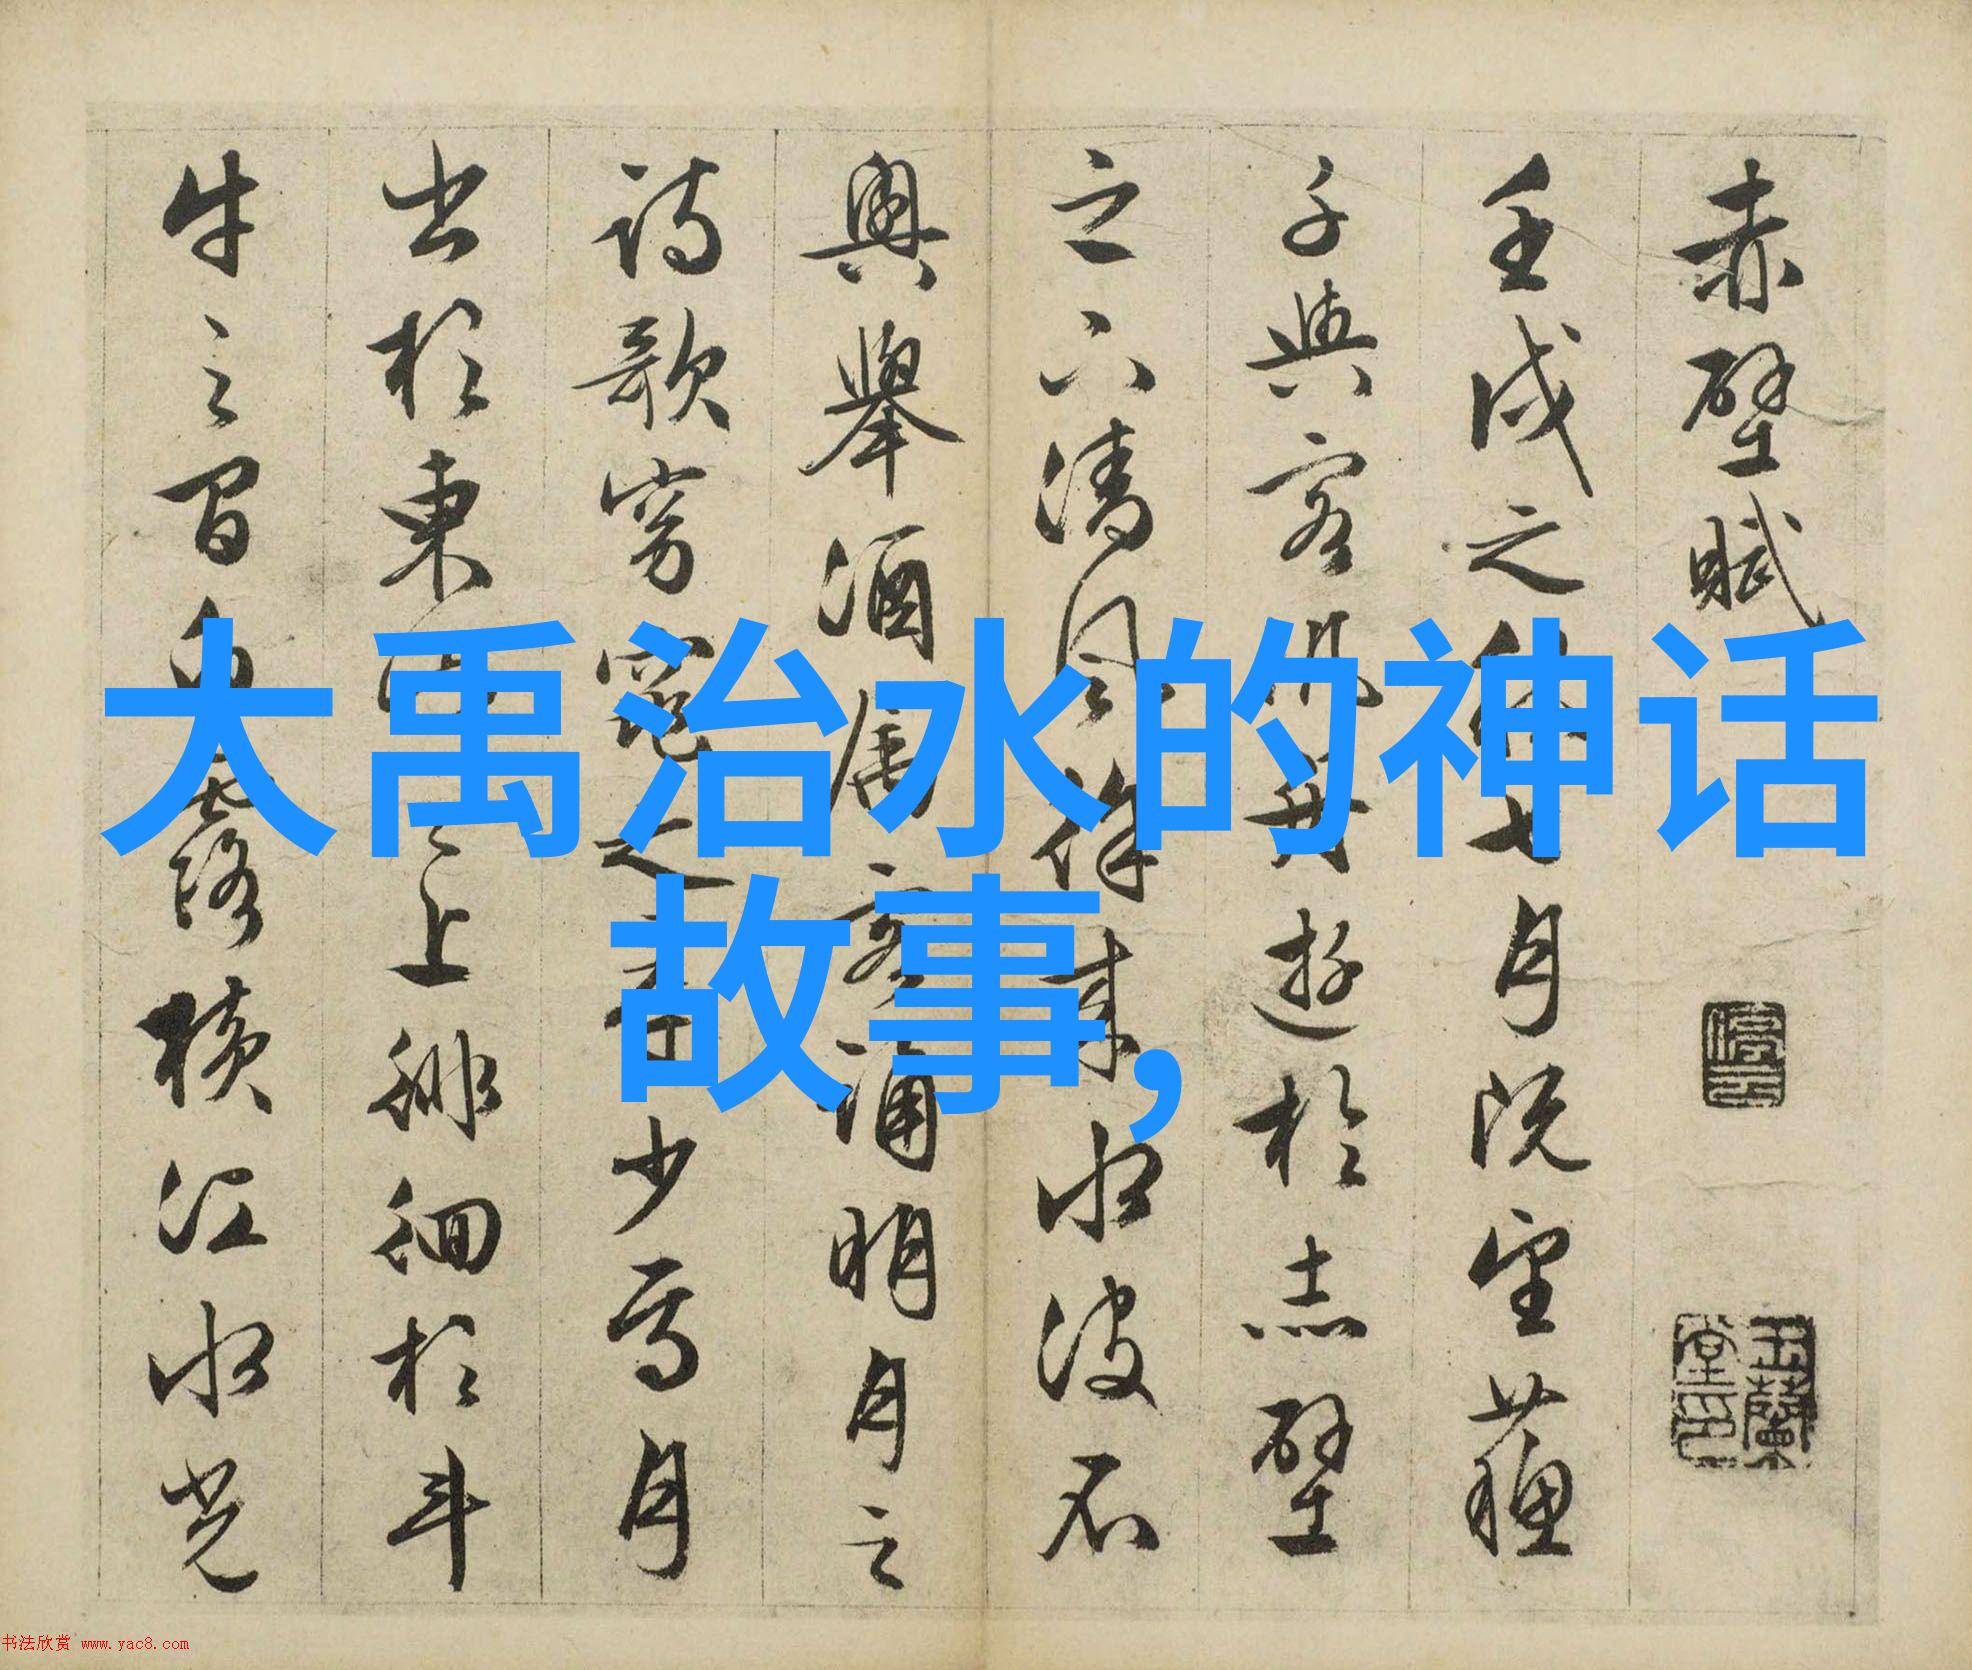 大禹治水的神话
故事,
赤壁賦
壬戌之秋七月既望蘇
子與客汎舟遊於赤壁
之下清風徐來水波不
興舉酒屬客誦明月之
詩歌窈窕之章少焉月
出於東山之上徘徊於斗
牛之間白露橫江水光
停云
玉蘭堂印
书法欣赏 www.yac8.com